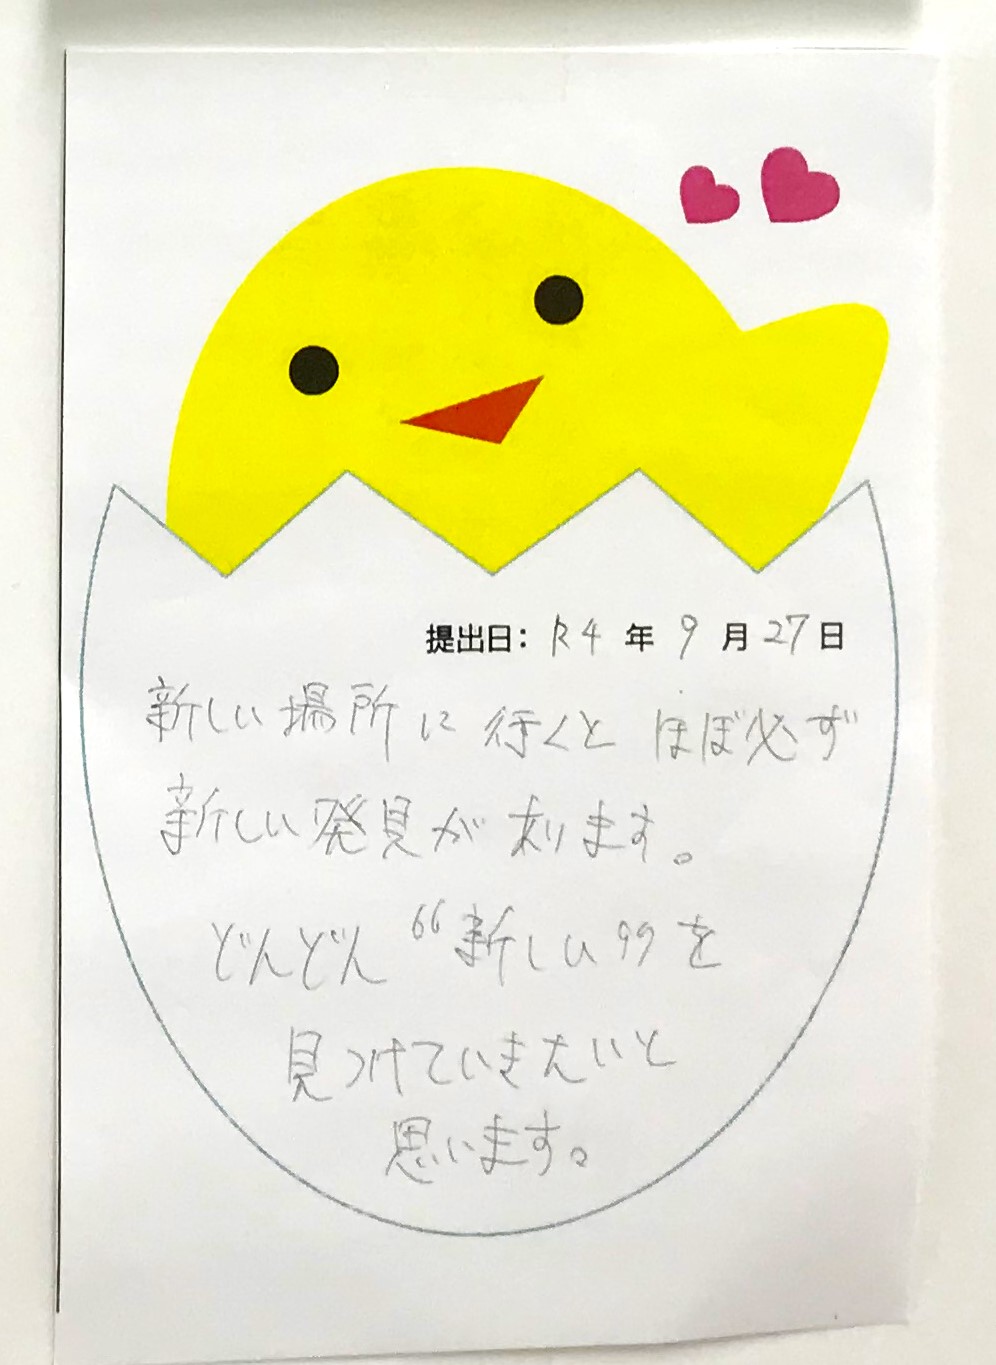 提出日: R4 年 9 月 27 日
新しい場所に行くとほぼ必ず
新しい発見が有ります。
どんどん“新しい”を
見つけていきたいと
思います。